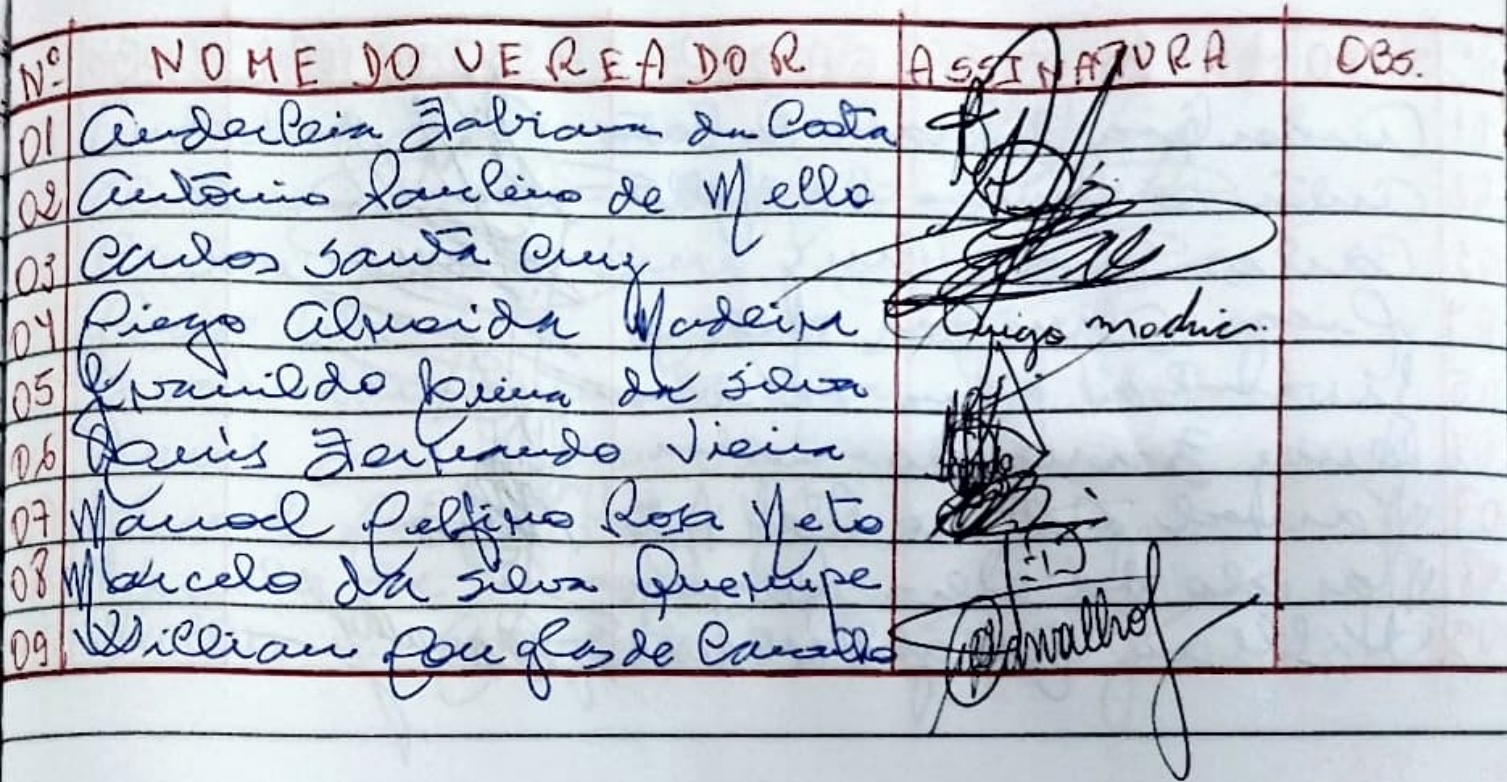 Nº NOME DO VEREADOR ASSINATURA OBS.
01 Anderleia Fabiana da Costa
02 Antônio Paulino de Mello
03 Carlos Santa Cruz
04 Diego Almeida Madeira Diego
05 da Silva
06 Fernando Vieira
07 Manoel Delfino Rosa Neto
08 Marcelo da Silva Querupe
09 Willian Douglas de Carvalho Carvalho